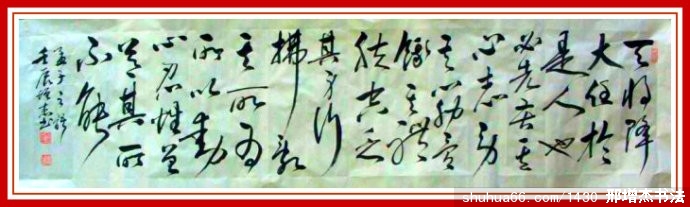 天将降
大任於
是人也
必先苦其
心志劳
其筋骨
饿其體
肤空乏
其身行
拂乱
其所为
所以动
心忍性曾
益其所
不能
孟子之语
壬辰增杰书
shuhua66.com/1430 邢增杰书法